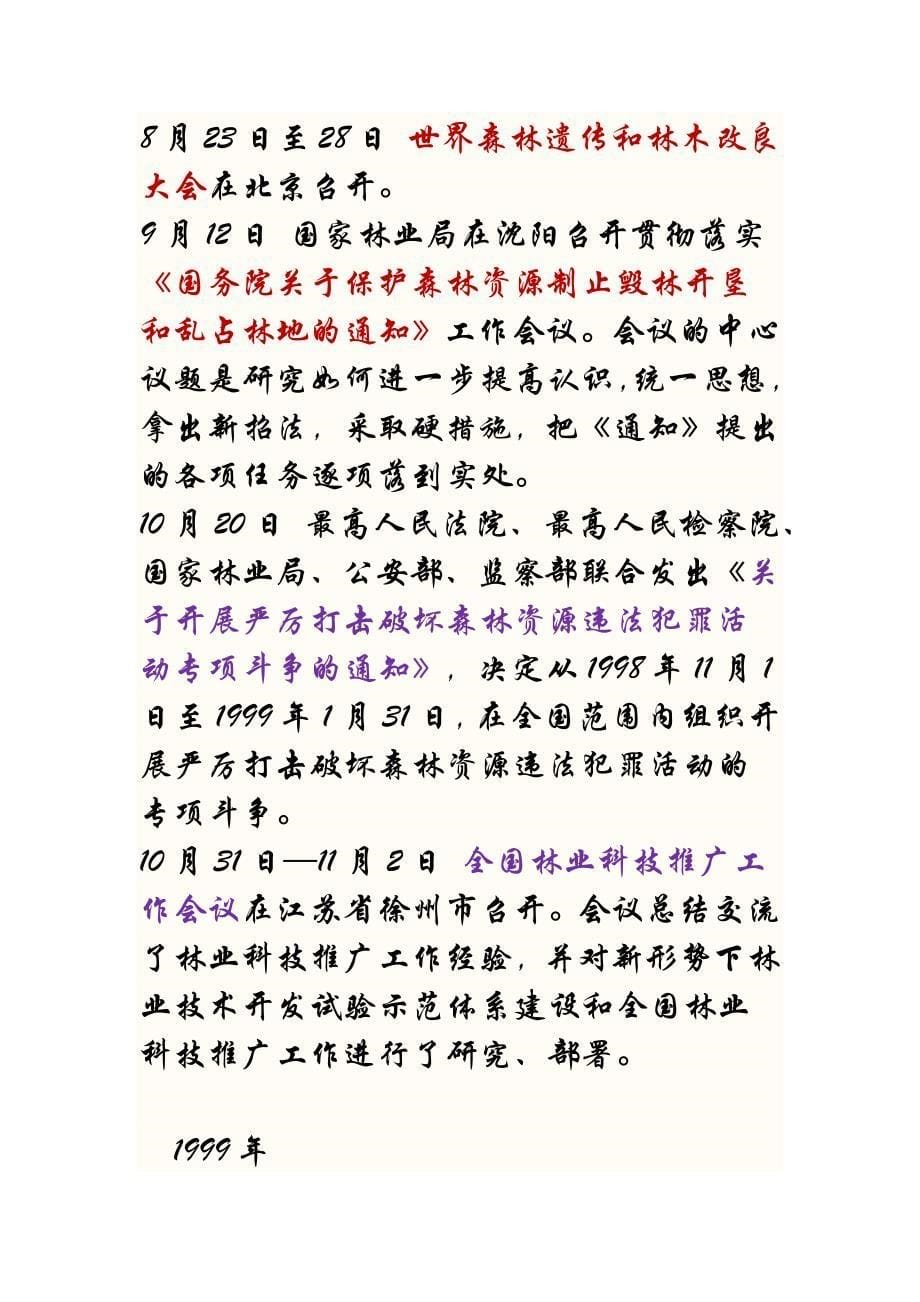 8月23日至28日 世界森林遗传和林木改良
大会在北京召开。
9月12日 国家林业局在沈阳召开贯彻落实
《国务院关于保护森林资源制止毁林开垦
和乱占林地的通知》工作会议。会议的中心
议题是研究如何进一步提高认识,统一思想,
拿出新招法，采取硬措施，把《通知》提出
的各项任务逐项落到实处。
10月20日 最高人民法院、最高人民检察院、
国家林业局、公安部、监察部联合发出《关
于开展严厉打击破坏森林资源违法犯罪活
动专项斗争的通知》，决定从1998年11月1
日至1999年1月31日,在全国范围内组织开
展严厉打击破坏森林资源违法犯罪活动的
专项斗争。
10月31日—11月2日 全国林业科技推广工
作会议在江苏省徐州市召开。会议总结交流
了林业科技推广工作经验，并对新形势下林
业技术开发试验示范体系建设和全国林业
科技推广工作进行了研究、部署。
1999年